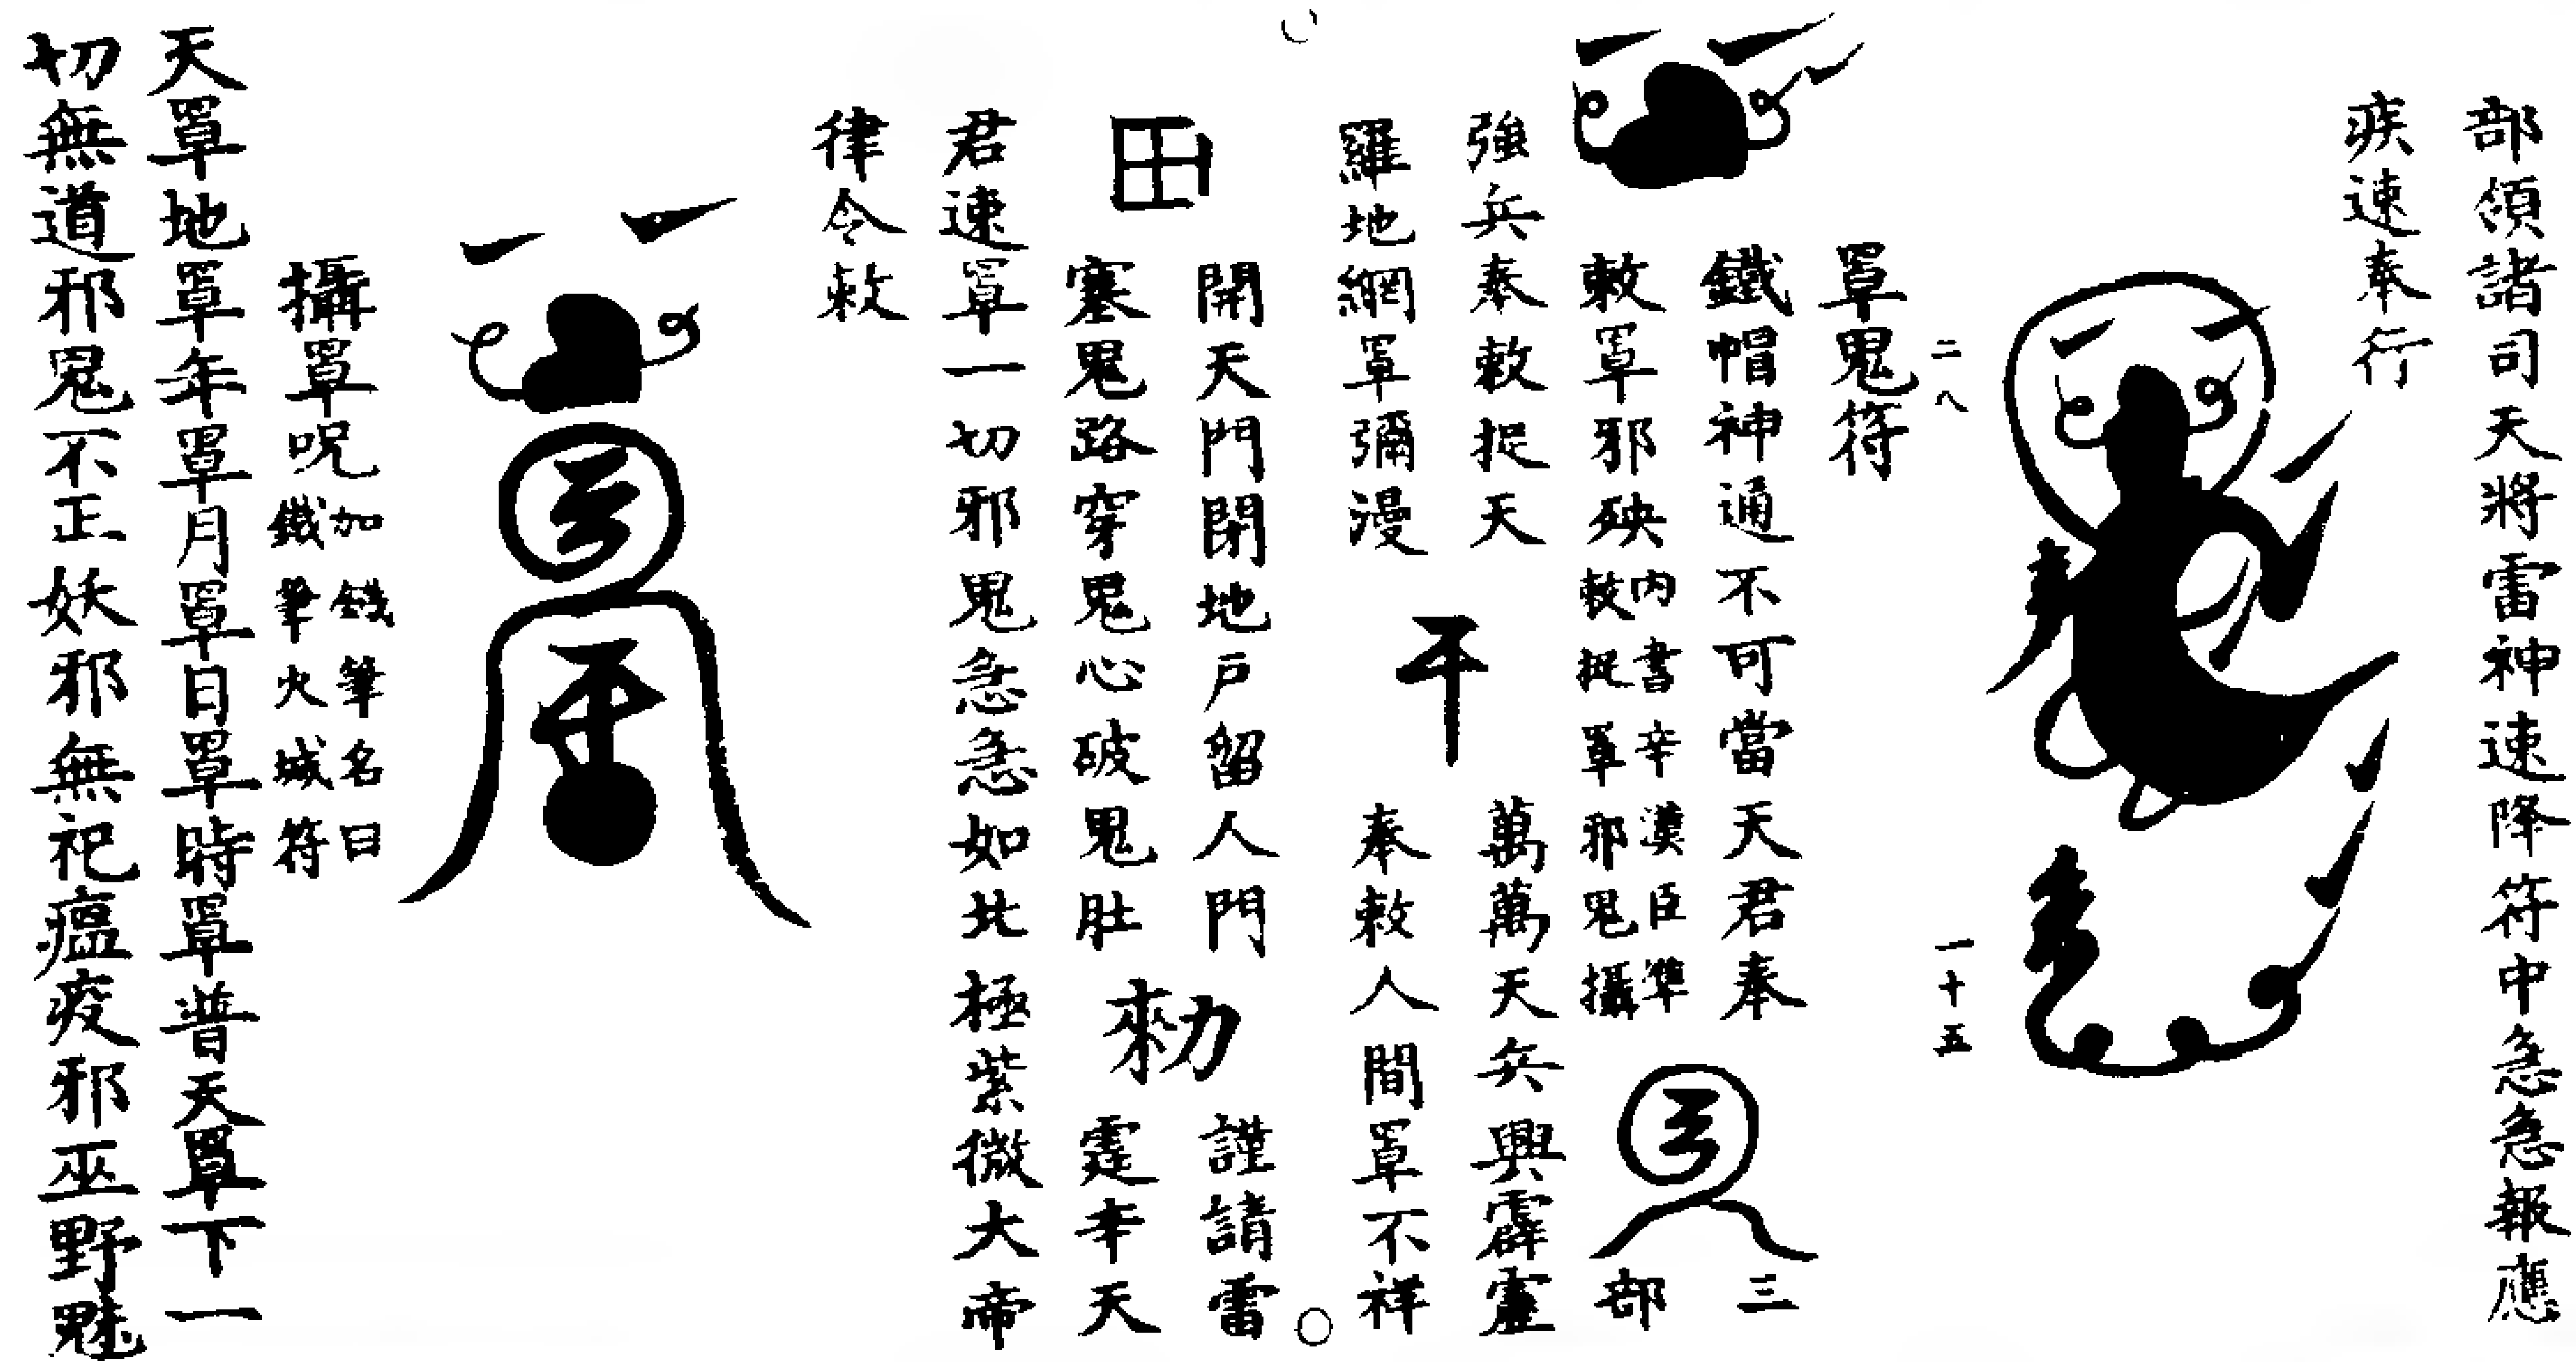 部領諸司天將雷神速降符中急急報應
疾速奉行
二八
一十五
罩鬼符
鐵帽神通不可當天君奉
敕罩邪殃
內書辛漢臣準
敕捉罩邪鬼攝
三部
強兵奉敕捉天
羅地網罩彌漫
干
萬萬天兵興霹靂
奉敕人間罩不祥
田
開天門閉地戶留人門
塞鬼路穿鬼心破鬼肚
勑
謹請雷
霆辛天
君速罩一切邪鬼急急如北極紫微大帝
律令敕
攝罩呪
加鐵筆名曰
鐵筆火城符
天罩地罩年罩月罩日罩時罩普天罩下一
切無道邪鬼不正妖邪無祀瘟疫邪巫野魅